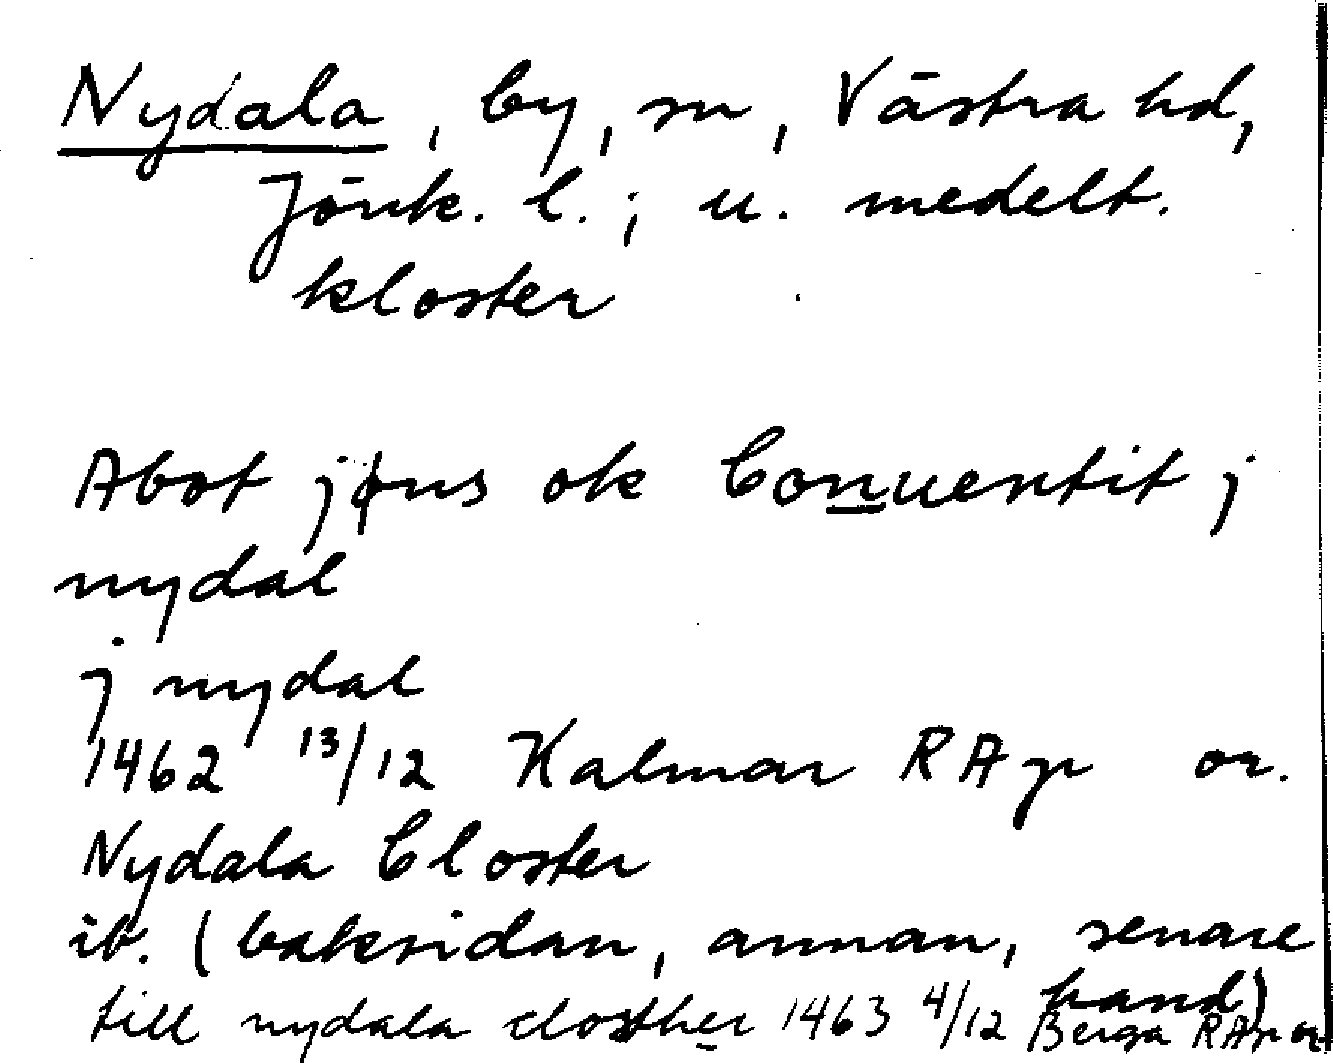 Nydala, by, sn, Västra hd,
Jönk. l.; u. medelt.
kloster
Abot jøns ok Conuentit j
nydal
j nydal
1462 13/12 Kalmar RAp or.
Nydala Closter
ib. (baksidan, annan, senare
hand)
till nydala closther 1463 4/12 Berga RAp or